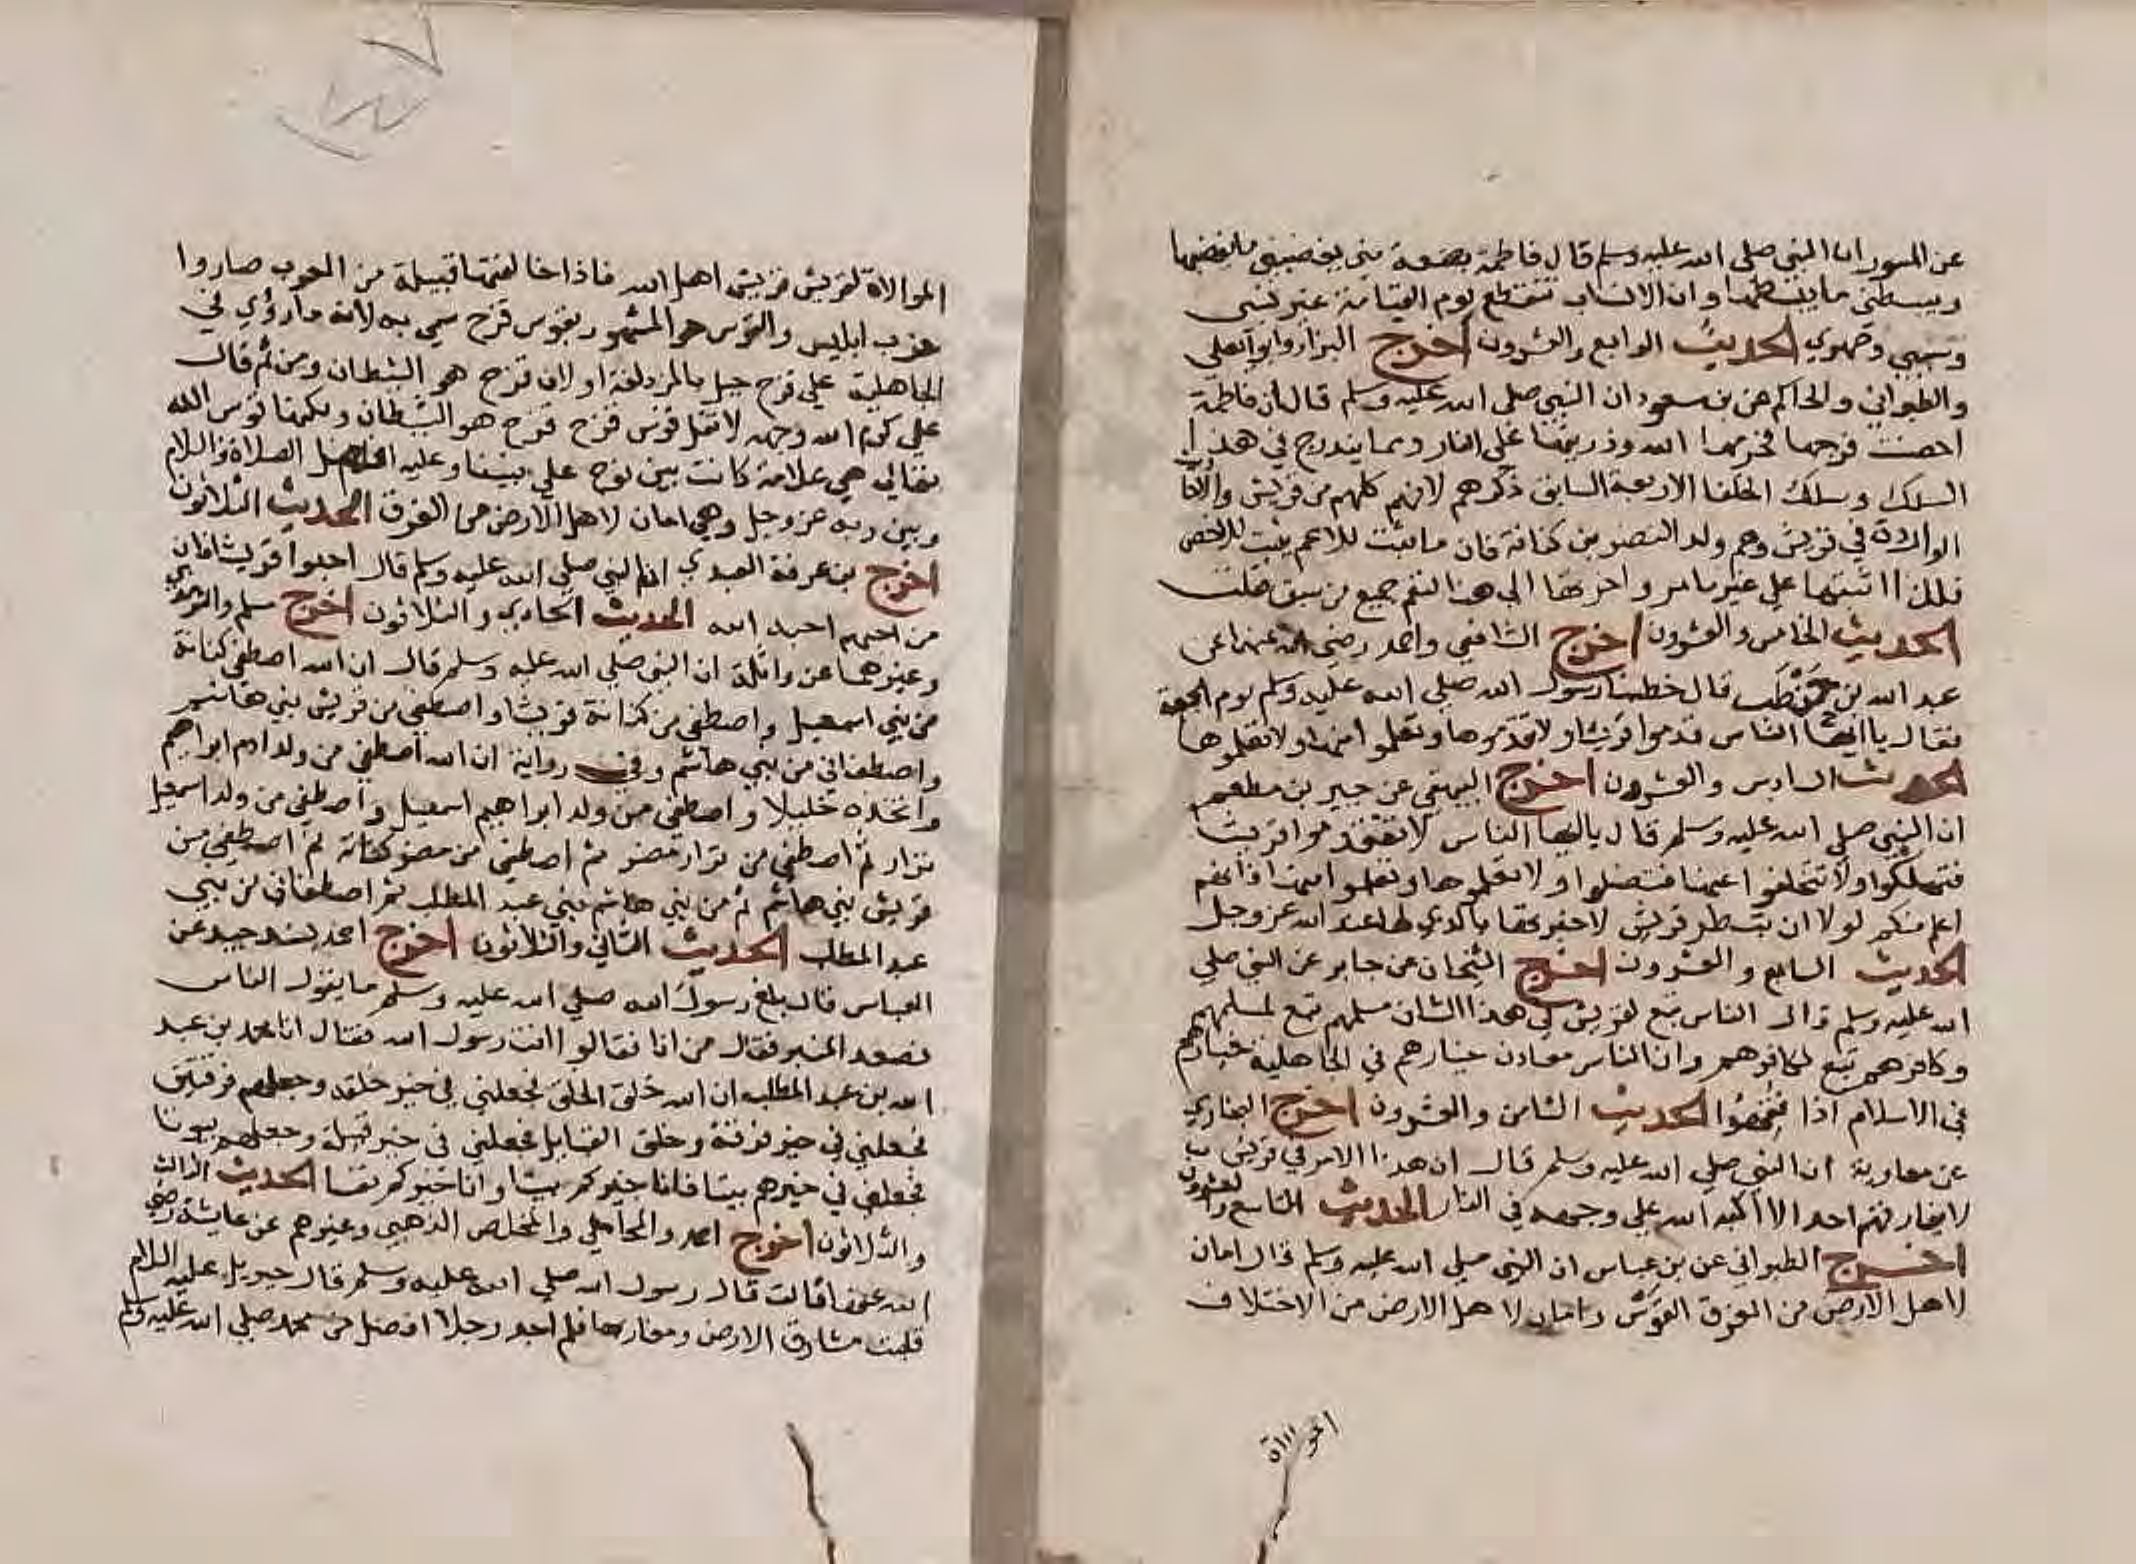 عن المسور ان النبي صلى الله عليه وسلم قال فاطمة بضعة مني يغضبني ما يغضبها
ويبسطني ما يبسطها وان الانساب تنقطع يوم القيامة غير نسبي
وسببي وصهري الحديث الرابع والعشرون اخرج البزار وابو يعلي
والطبراني والحاكم عن بن مسعود ان النبي صلى الله عليه وسلم قال ان فاطمة
احصنت فرجها فحرمها الله وذريتها على النار ومما يندرج في هذا
السلك وسلك الخلفا الاربعة السابق ذكرهم لانهم كلهم من قريش
الواردة في قريش وهم ولد النضر بن كنانة فان ما يثبت للاعم يثبت للاخص
فلذا اثبتها على غير ما مر واخرتها الي هنا لتعم جميع من سبق فقلت
الحديث الخامس والعشرون اخرج الشافعي واحمد رضي الله عنهما عن
عبد الله بن حنطب قال خطبنا رسول الله صلى الله عليه وسلم يوم الجمعة
فقال يا ايها الناس قدموا قريشا ولا تقدموها وتعلموا منها ولا تعلموها
الحديث السادس والعشرون اخرج البيهقي عن جبير بن مطعم
ان النبي صلى الله عليه وسلم قال يا ايها الناس لا تتقدموا قريشا
فتهلكوا ولا تتخلفوا عنها فتضلوا ولا تعلموها وتعلموا منها فانهم
اعلم منكم لولا ان تبطر قريش لاخبرتها بالذي لها عند الله عز وجل
الحديث السابع والعشرون اخرج الشيخان عن جابر عن النبي صلي
الله عليه وسلم قال الناس تبع لقريش في هذا الشان مسلمهم تبع لمسلمهم
وكافرهم تبع لكافرهم وان الناس معادن خيارهم في الجاهلية خيارهم
في الاسلام اذا فقهوا الحديث الثامن والعشرون اخرج البخاري
عن معاوية ان النبي صلي الله عليه وسلم قال ان هذا الامر في قريش
لا يعاديهم احد الا اكبه الله علي وجهه في النار الحديث التاسع والعشرون
اخرج الطبراني عن بن عباس ان النبي صلى الله عليه وسلم قال امان
لاهل الارض من الغرق القوس وامان لاهل الارض من الاختلاف
الموالاة لقريش قريش اهل الله فاذا خالفتها قبيلة من العرب صاروا
حزب ابليس والقوس هو المشهور بقوس قزح سمي به لانه ما رؤي في
الجاهلية علي قزح جبل بالمزدلفة او لان قزح هو الشيطان ومن ثم قال
علي كرم الله وجهه لا تقل قوس قزح قزح هو الشيطان ولكنها قوس الله
تعالي هي علامة كانت بين نوح علي نبينا وعليه افضل الصلاة والسلام
وبين ربه عز وجل وهي امان لاهل الارض من الغرق الحديث الثلاثون
اخرج بن عرفة العبدي ان النبي صلى الله عليه وسلم قال احبوا قريشا فان
من احبهم احبه الله الحديث الحادي والثلاثون اخرج مسلم والترمذي
وغيرهما عن واثلة ان النبي صلى الله عليه وسلم قال ان الله اصطفي كنانة
من بني اسمعيل واصطفي من كنانة قريشا واصطفي من قريش بني هاشم
واصطفاني من بني هاشم وفي رواية ان الله اصطفي من ولد ادم ابراهيم
واتخذه خليلا واصطفي من ولد ابراهيم اسمعيل واصطفي من ولد اسمعيل
نزار ثم اصطفي من نزار مضر ثم اصطفي من مضر كنانة ثم اصطفي من
قريش بني هاشم ثم من بني هاشم بني عبد المطلب ثم اصطفاني من بني
عبد المطلب الحديث الثاني والثلاثون اخرج احمد بسند جيد عن
العباس قال بلغ رسول الله صلي الله عليه وسلم ما يقول الناس
فصعد المنبر فقال من انا فقالوا انت رسول الله فقال انا محمد بن عبد
الله بن عبد المطلب ان الله خلق الخلق فجعلني في خير خلقه وجعلهم فرقتين
فجعلني في خير فرقة وخلق القبايل فجعلني في خير قبيلة وجعلهم بيوتا
فجعلني في خيرهم بيتا فانا خيركم بيتا وانا خيركم نفسا الحديث الثالث
والثلاثون اخرج احمد والمحاملي والمخلص الذهبي وغيرهم عن عايشة رضي
الله عنها قالت قال رسول الله صلي الله عليه وسلم قال جبريل عليه السلام
قلبت مشارق الارض ومغاربها فلم اجد رجلا افضل من محمد صلي الله عليه وسلم